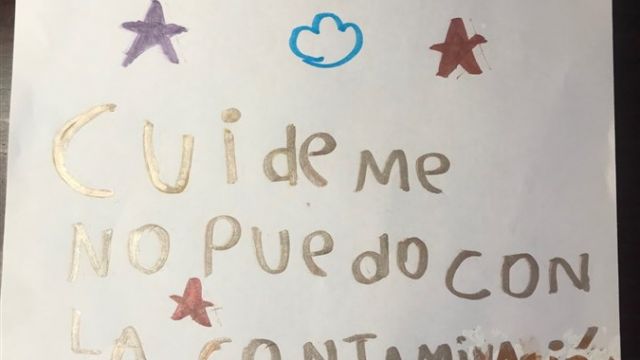 CUideMe
NO PUedo CON
LA CONTAMINACIÓN